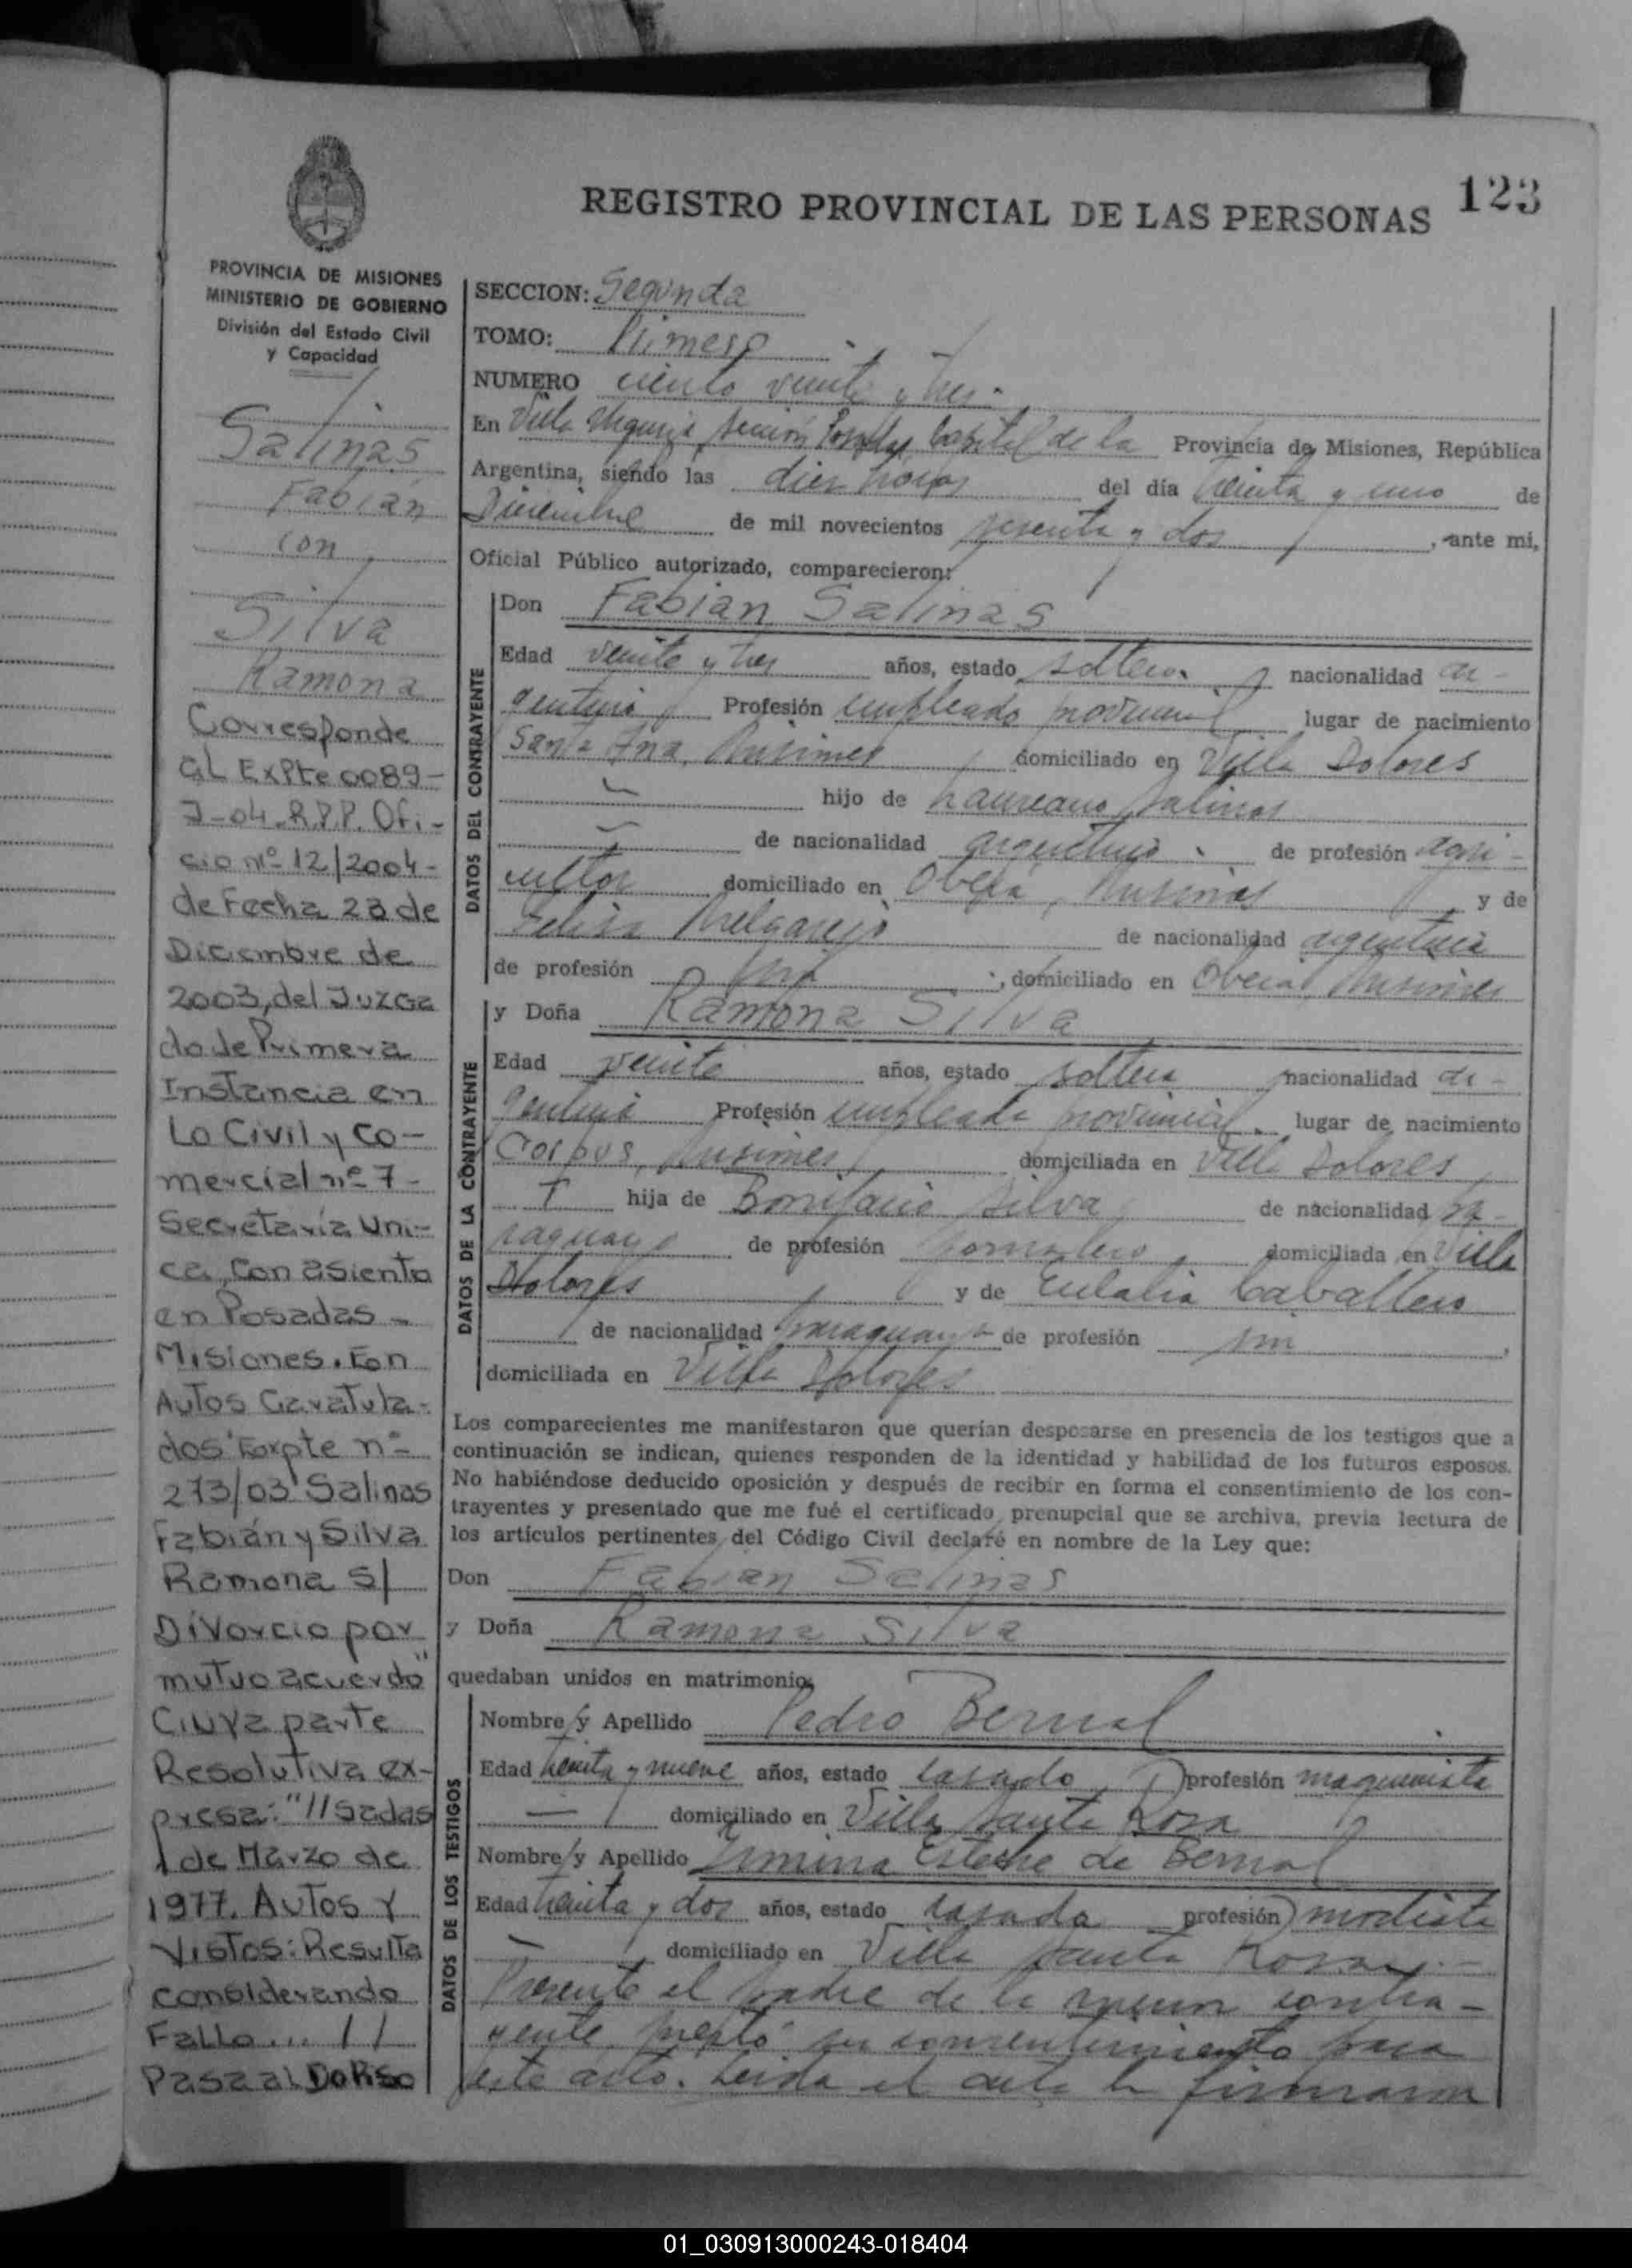 REGISTRO PROVINCIAL DE LAS PERSONAS
123
PROVINCIA DE MISIONES
MINISTERIO DE GOBIERNO
División del Estado Civil
y Capacidad
Salinas
Fabian
con
Silva
Ramona
Corresponde
al Expte 0089-
J-04-R.P.P. Ofi-
cio nº 12/2004-
de Fecha 23 de
Diciembre de
2003, del Juzga
do de Primera
Instancia en
Lo Civil y Co-
mercial nº 7-
Secretaría Uni-
ca, Con asiento
en Posadas -
Misiones. En
Autos Caratula-
dos "Expte nº
273/03 Salinas
Fabián y Silva
Ramona S/
Divorcio por
mutuo acuerdo"
Cuya parte
Resolutiva ex-
presa: "//sadas
1 de Marzo de
1977. Autos Y
Vistos: Resulta
considerando
Fallo... //
Pasa al Dorso
SECCION: Segunda
TOMO: Primero
NUMERO ciento veinte y tres
En Villa Urquiza, sección Posadas, Capital de la Provincia de Misiones, República
Argentina, siendo las diez horas del día treinta y uno de
Diciembre de mil novecientos sesenta y dos, ante mi,
Oficial Público autorizado, comparecieron:
DATOS DEL CONTRAYENTE
Don Fabian Salinas
Edad veinte y tres años, estado soltero nacionalidad ar-
gentino Profesión empleado provincial lugar de nacimiento
Santa Ana, Misiones domiciliado en Villa Dolores
hijo de Laureano Salinas
de nacionalidad argentino de profesión agri-
cultor domiciliado en Oberá, Misiones y de
Felisa Melgarejo de nacionalidad argentina
de profesión sin, domiciliado en Oberá, Misiones
DATOS DE LA CONTRAYENTE
y Doña Ramona Silva
Edad veinte años, estado soltera nacionalidad ar-
gentina Profesión empleada provincial lugar de nacimiento
Corpus, Misiones domiciliada en Villa Dolores
hija de Bonifacio Silva de nacionalidad pa-
raguayo de profesión jornalero domiciliada en Villa
Dolores y de Eulalia Caballero
de nacionalidad paraguaya de profesión sin,
domiciliada en Villa Dolores
Los comparecientes me manifestaron que querían desposarse en presencia de los testigos que a
continuación se indican, quienes responden de la identidad y habilidad de los futuros esposos.
No habiéndose deducido oposición y después de recibir en forma el consentimiento de los con-
trayentes y presentado que me fué el certificado prenupcial que se archiva, previa lectura de
los artículos pertinentes del Código Civil declaré en nombre de la Ley que:
Don Fabian Salinas
y Doña Ramona Silva
quedaban unidos en matrimonio,
DATOS DE LOS TESTIGOS
Nombre y Apellido Pedro Bernal
Edad treinta y nueve años, estado casado profesión maquinista
domiciliado en Villa Santa Rosa
Nombre y Apellido de Bernal
Edad treinta y dos años, estado casada profesión modista
domiciliado en Villa Santa Rosa.-
Presente el padre de la menor contra-
yente, prestó su consentimiento para
este acto. Leída el acta la firmaron
01_030913000243-018404